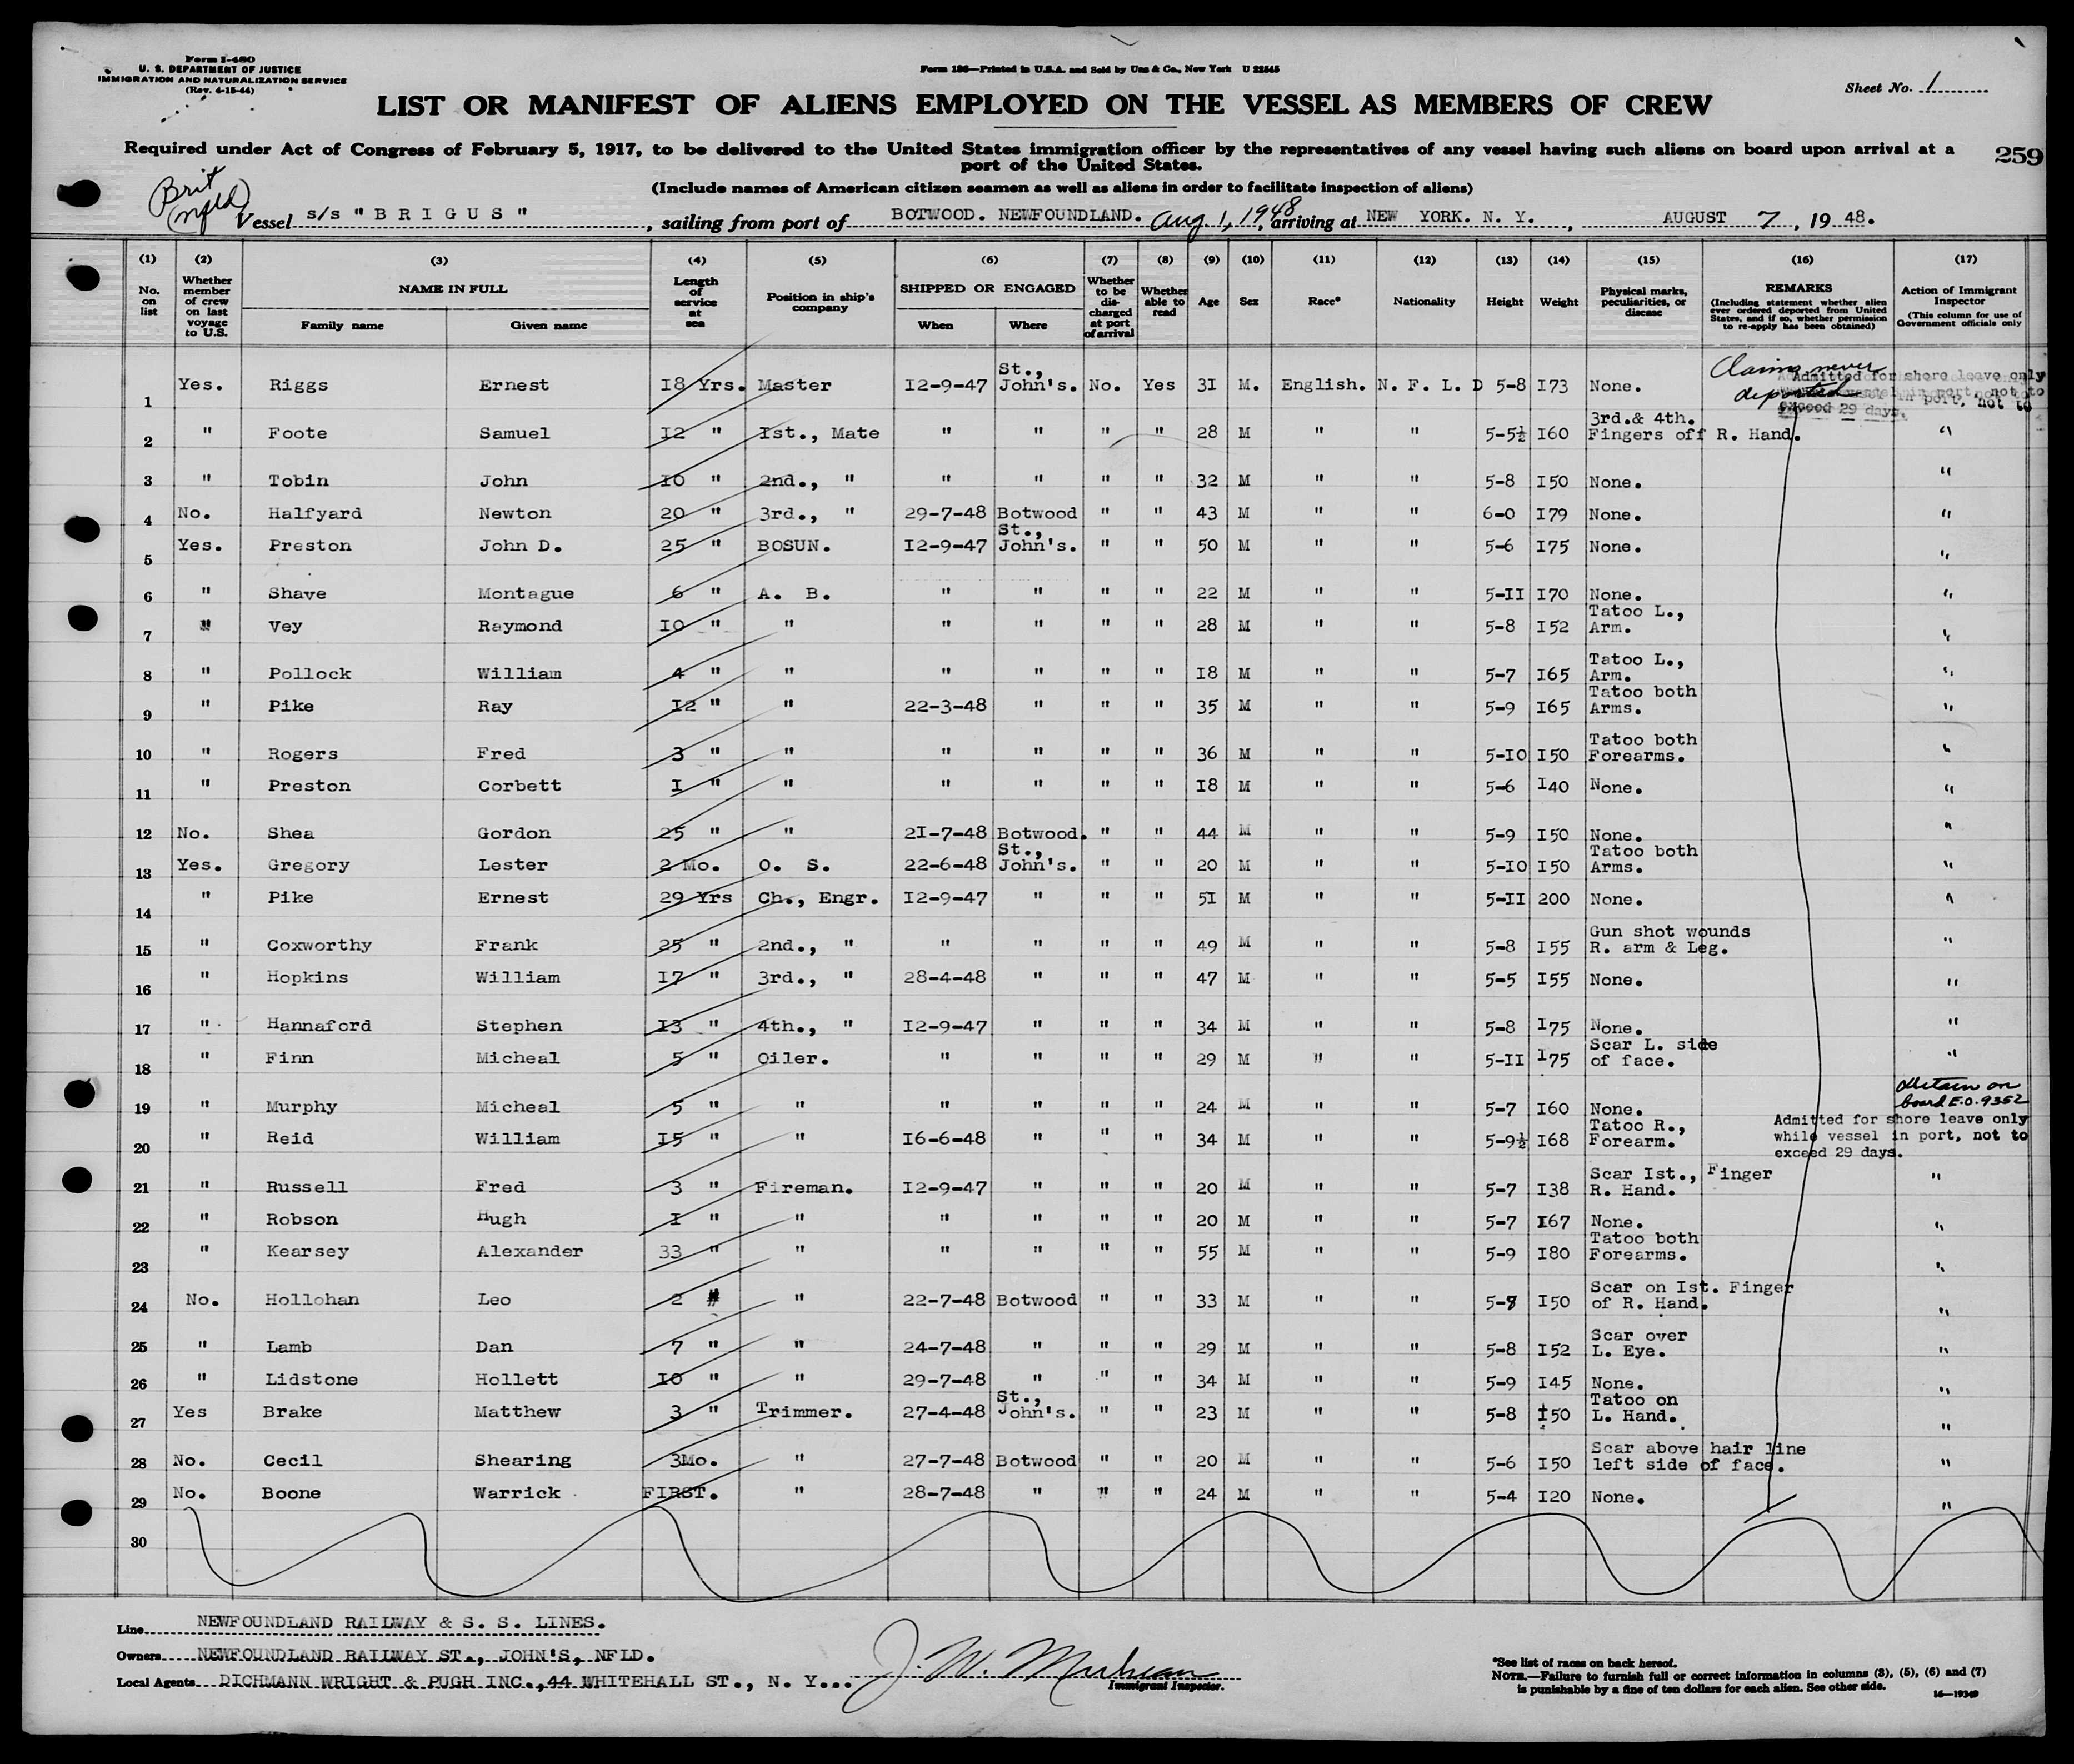 Form I-480
U. S. DEPARTMENT OF JUSTICE
IMMIGRATION AND NATURALIZATION SERVICE
(Rev. 4-15-44)
Form 186—Printed in U.S.A. and Sold by Unz & Co., New York U 22545
Sheet No. 1
LIST OR MANIFEST OF ALIENS EMPLOYED ON THE VESSEL AS MEMBERS OF CREW
Required under Act of Congress of February 5, 1917, to be delivered to the United States immigration officer by the representatives of any vessel having such aliens on board upon arrival at a
port of the United States.
259
(Include names of American citizen seamen as well as aliens in order to facilitate inspection of aliens)
Brit
(Nfld)
Vessel s/s "BRIGUS", sailing from port of BOTWOOD. NEWFOUNDLAND. Aug. 1, 1948, arriving at NEW YORK. N. Y., AUGUST 7, 1948.
(1) (2) (3) (4) (5) (6) (7) (8) (9) (10) (11) (12) (13) (14) (15) (16) (17)
No. on list
Whether member of crew on last voyage to U.S.
NAME IN FULL
Family name Given name
Length of service at sea
Position in ship's company
SHIPPED OR ENGAGED
When Where
Whether to be discharged at port of arrival
Whether able to read
Age
Sex
Race*
Nationality
Height
Weight
Physical marks, peculiarities, or disease
REMARKS
(Including statement whether alien ever ordered deported from United States, and if so, whether permission to re-apply has been obtained)
Action of Immigrant Inspector
(This column for use of Government officials only
Claims never deported
Admitted for shore leave only
exceed 29 days.
1 Yes. Riggs Ernest I8 Yrs. Master I2-9-47 St., John's. No. Yes 3I M. English. N. F. L. D 5-8 I73 None.
2 " Foote Samuel I2 " Ist., Mate " " " " 28 M " " 5-5½ I60 3rd.& 4th. Fingers off R. Hand. "
3 " Tobin John I0 " 2nd., " " " " " 32 M " " 5-8 I50 None. "
4 No. Halfyard Newton 20 " 3rd., " 29-7-48 Botwood " " 43 M " " 6-0 I79 None. "
5 Yes. Preston John D. 25 " BOSUN. I2-9-47 St., John's. " " 50 M " " 5-6 I75 None. "
6 " Shave Montague 6 " A. B. " " " " 22 M " " 5-II I70 None. "
7 " Vey Raymond I0 " " " " " " 28 M " " 5-8 I52 Tatoo L., Arm. "
8 " Pollock William 4 " " " " " " I8 M " " 5-7 I65 Tatoo L., Arm. "
9 " Pike Ray I2 " " 22-3-48 " " " 35 M " " 5-9 I65 Tatoo both Arms. "
10 " Rogers Fred 3 " " " " " " 36 M " " 5-I0 I50 Tatoo both Forearms. "
11 " Preston Corbett I " " " " " " I8 M " " 5-6 I40 None. "
12 No. Shea Gordon 25 " " 2I-7-48 Botwood. " " 44 M " " 5-9 I50 None. "
13 Yes. Gregory Lester 2 Mo. O. S. 22-6-48 St., John's. " " 20 M " " 5-I0 I50 Tatoo both Arms. "
14 " Pike Ernest 29 Yrs Ch., Engr. I2-9-47 " " " 5I M " " 5-II 200 None. "
15 " Coxworthy Frank 25 " 2nd., " " " " " 49 M " " 5-8 I55 Gun shot wounds R. arm & Leg. "
16 " Hopkins William I7 " 3rd., " 28-4-48 " " " 47 M " " 5-5 I55 None. "
17 " Hannaford Stephen I3 " 4th., " I2-9-47 " " " 34 M " " 5-8 I75 None. "
18 " Finn Micheal 5 " Oiler. " " " " 29 M " " 5-II I75 Scar L. side of face. "
19 " Murphy Micheal 5 " " " " " " 24 M " " 5-7 I60 None. detain on board E.O. 9352
20 " Reid William I5 " " I6-6-48 " " " 34 M " " 5-9½ I68 Tatoo R., Forearm. Admitted for shore leave only while vessel in port, not to exceed 29 days.
21 " Russell Fred 3 " Fireman. I2-9-47 " " " 20 M " " 5-7 I38 Scar Ist., Finger R. Hand. "
22 " Robson Hugh I " " " " " " 20 M " " 5-7 I67 None. "
23 " Kearsey Alexander 33 " " " " " " 55 M " " 5-9 I80 Tatoo both Forearms. "
24 No. Hollohan Leo 2 " " 22-7-48 Botwood " " 33 M " " I50 Scar on Ist. Finger of R. Hand. "
25 " Lamb Dan 7 " " 24-7-48 " " " 29 M " " 5-8 I52 Scar over L. Eye. "
26 " Lidstone Hollett I0 " " 29-7-48 " " " 34 M " " 5-9 I45 None. "
27 Yes Brake Matthew 3 " Trimmer. 27-4-48 St., John's. " " 23 M " " 5-8 I50 Tatoo on L. Hand. "
28 No. Cecil Shearing 3Mo. " 27-7-48 Botwood " " 20 M " " 5-6 I50 Scar above hair line left side of face. "
29 No. Boone Warrick FIRST. " 28-7-48 " " " 24 M " " 5-4 I20 None. "
30
Line NEWFOUNDLAND RAILWAY & S. S. LINES.
Owners NEWFOUNDLAND RAILWAY ST., JOHN'S, NFLD.
Local Agents DICHMANN WRIGHT & PUGH INC., 44 WHITEHALL ST., N. Y.
J. W.
Immigrant Inspector.
*See list of races on back hereof.
NOTE.—Failure to furnish full or correct information in columns (3), (5), (6) and (7)
is punishable by a fine of ten dollars for each alien. See other side.
16—19349